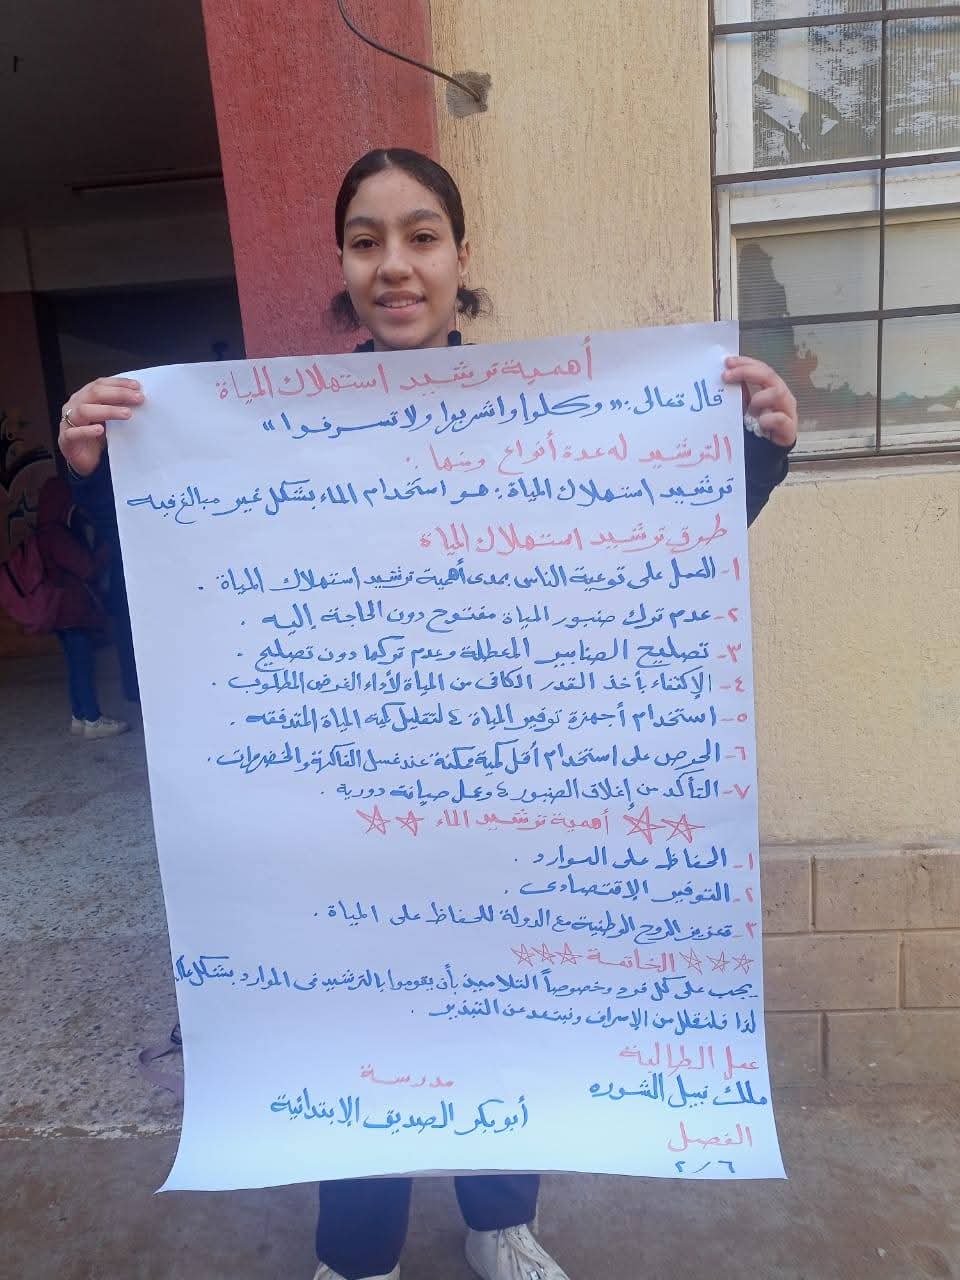 أهمية ترشيد استهلاك المياة
قال تعالى: "وكلوا واشربوا ولا تسرفوا"
الترشيد له عدة أنواع ومنها :
ترشيد استهلاك المياة : هو استخدام الماء بشكل غير مبالغ فيه
طرق ترشيد استهلاك المياة
١- العمل على توعية الناس بمدى أهمية ترشيد استهلاك المياة .
٢- عدم ترك صنبور المياة مفتوح دون الحاجة إليه .
٣- تصليح الصنابير المعطلة وعدم تركها دون تصليح .
٤- الإكتفاء بأخذ القدر الكافى من المياة لأداء الغرض المطلوب .
٥- استخدام أجهزة توفير المياة ، لتقليل كمية المياة المتدفقه .
٦- الحرص على استخدام أقل كمية ممكنة عند غسل الفاكهة والخضروات .
٧- التأكد من إغلاق الصنبور ، وعمل صيانة دورية .
أهمية ترشيد الماء
١- الحفاظ على الموارد .
٢- التوفير الإقتصادى .
٣- تعزيز الروح الوطنية مع الدولة للحفاظ على المياة .
الخاتمة
يجب على كل فرد وخصوصاً التلاميذ بأن يقوموا بالترشيد فى الموارد بشكل عام
لذا فلنقلل من الإسراف ونبتعد عن التبذير .
عمل الطالبة
ملك نبيل الشوره
مدرسة
أبو بكر الصديق الإبتدائية
الفصل
٢/٦